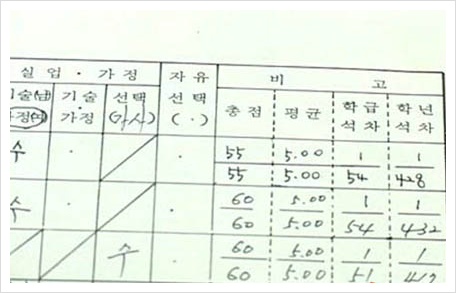 실업 · 가정 자유 선택 ( · ) 비 고
기술(남) 가정(여) 기술 · 가정 선택 (가사) 총점 평균 학급 석차 학년 석차
수 · · 55 5.00 1 1
55 5.00 54 428
수 · · 60 5.00 1 1
60 5.00 54 432
수 · 60 5.00 1 1
60 5.00 51